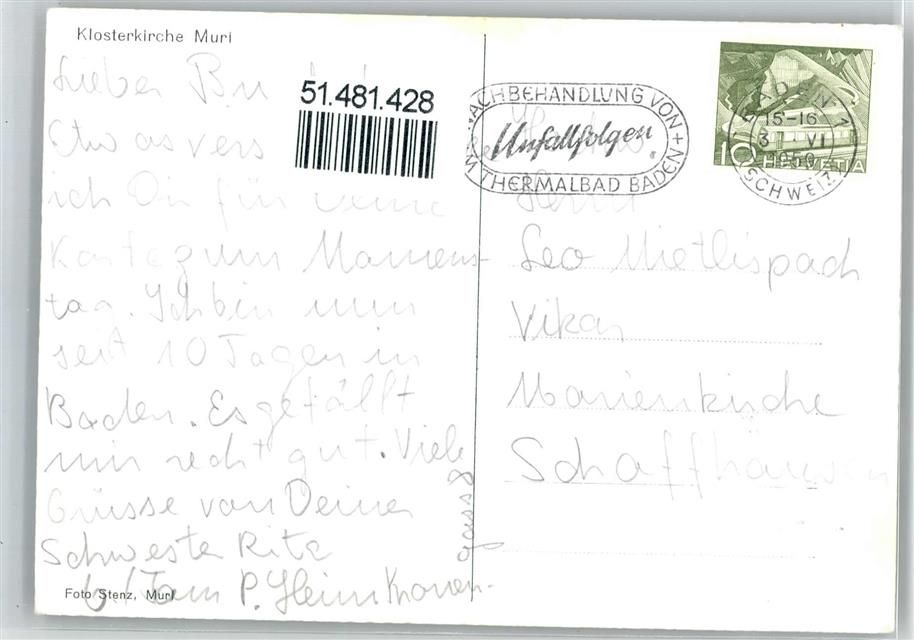 Klosterkirche Muri
Lieber Bru
51.481.428
Etwas vers
ich Dir für Deine
Karte zum Namens-
tag. Ich bin nun
seit 10 Tagen in
Baden. Es gefällt
mir recht gut. Viele
Grüsse von Deiner
Schwester Rita
P.
Foto Stenz, Muri
NACHBEHANDLUNG VON
Unfallfolgen
THERMALBAD BADEN
BADEN 1
15-16
3 VI
1950
SCHWEIZ
10 HELVETIA
Herrn
Leo Miethlispach
Vikar
Marienkirche
Schaffhausen